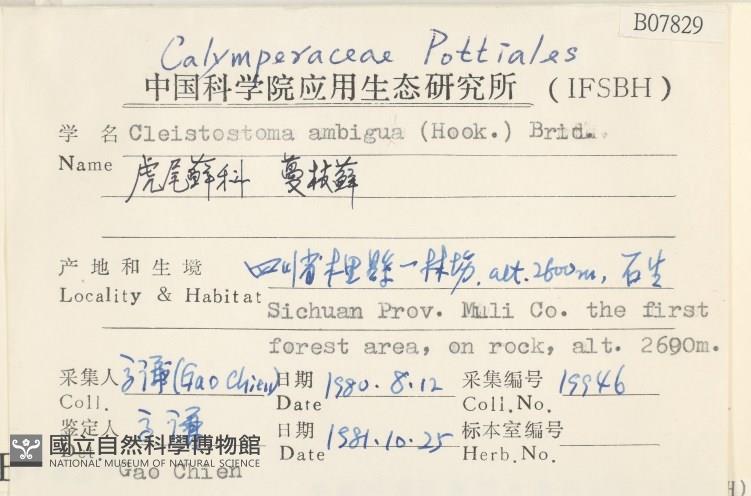 B07829
Calymperaceae Pottiales
中国科学院应用生态研究所 (IFSBH)
学 名 Cleistostoma ambigua (Hook.) Brid.
Name 虎尾蘚科 蔓枝蘚
产地和生境 四川省木里縣一林场, alt. 2600m, 石生
Locality & Habitat
Sichuan Prov. Muli Co. the first
forest area, on rock, alt. 2690m.
采集人 高谦 (Gao Chien) 日期 1980.8.12 采集编号 19946
Coll. Date Coll.No.
鉴定人 高谦 日期 1981.10.25 标本室编号
Det. Date Herb.No.
Gao Chien
國立自然科學博物館
NATIONAL MUSEUM OF NATURAL SCIENCE